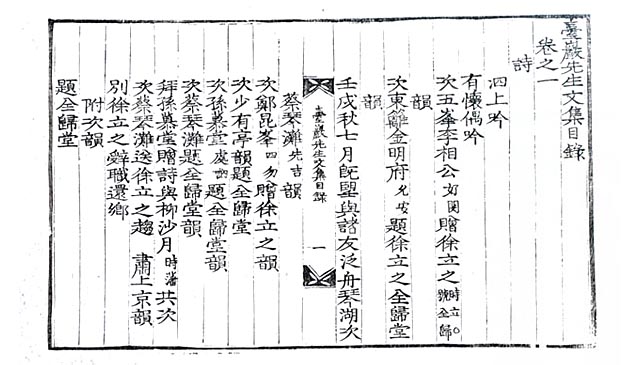 臺巖先生文集目錄
卷之一
詩
泗上吟
有懷偶吟
次五峯李相公好閔贈徐立之時立之號全歸
韻
次東籬金明府允安題徐立之全歸堂
韻
壬戌秋七月旣望與諸友泛舟琴湖次
蔡琴灘先吉韻
臺巖先生文集目錄 一
次鄭昆峯四勿贈徐立之韻
次少有亭韻題全歸堂
次孫慕堂處訥題全歸堂韻
次蔡琴灘題全歸堂韻
拜孫慕堂贈詩與柳沙月時藩共次
次蔡琴灘送徐立之趨 肅上京韻
別徐立之辭職還鄉
附次韻
題全歸堂